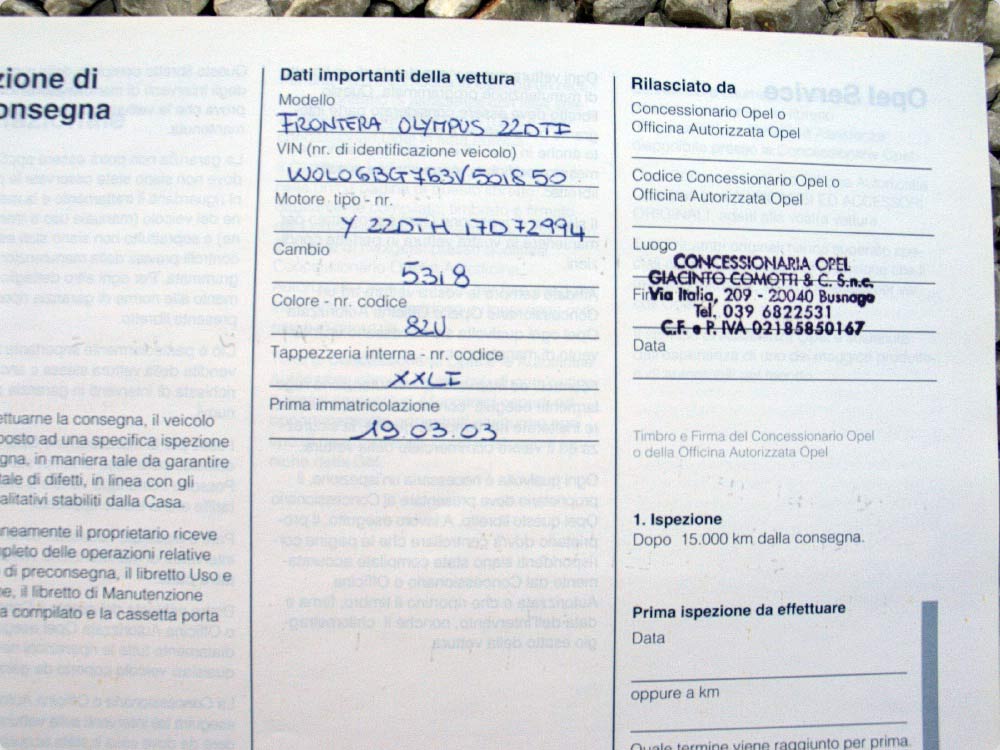 zione di
onsegna
ettuarne la consegna, il veicolo
posto ad una specifica ispezione
gna, in maniera tale da garantire
tale di difetti, in linea con gli
alitativi stabiliti dalla Casa.
neamente il proprietario riceve
pleto delle operazioni relative
di preconsegna, il libretto Uso e
ne, il libretto di Manutenzione
a compilato e la cassetta porta
Dati importanti della vettura
Modello
FRONTERA OLYMPUS 22DTI
VIN (nr. di identificazione veicolo)
WOLOGBG763V501850
Motore - tipo - nr.
Y 22DTH 17D72994
Cambio
5318
Colore - nr. codice
82U
Tappezzeria interna - nr. codice
XXLI
Prima immatricolazione
19.03.03
Rilasciato da
Concessionario Opel o
Officina Autorizzata Opel
Codice Concessionario Opel o
Officina Autorizzata Opel
Luogo
CONCESSIONARIA OPEL
GIACINTO COMOTTI & C. S.n.c.
Via Italia, 209 - 20040 Busnago
Tel. 039 6822531
C.F. e P. IVA 02185850167
Data
Timbro e Firma del Concessionario Opel
o della Officina Autorizzata Opel
1. Ispezione
Dopo 15.000 km dalla consegna.
Prima ispezione da effettuare
Data
oppure a km
Quale termine viene raggiunto per prima